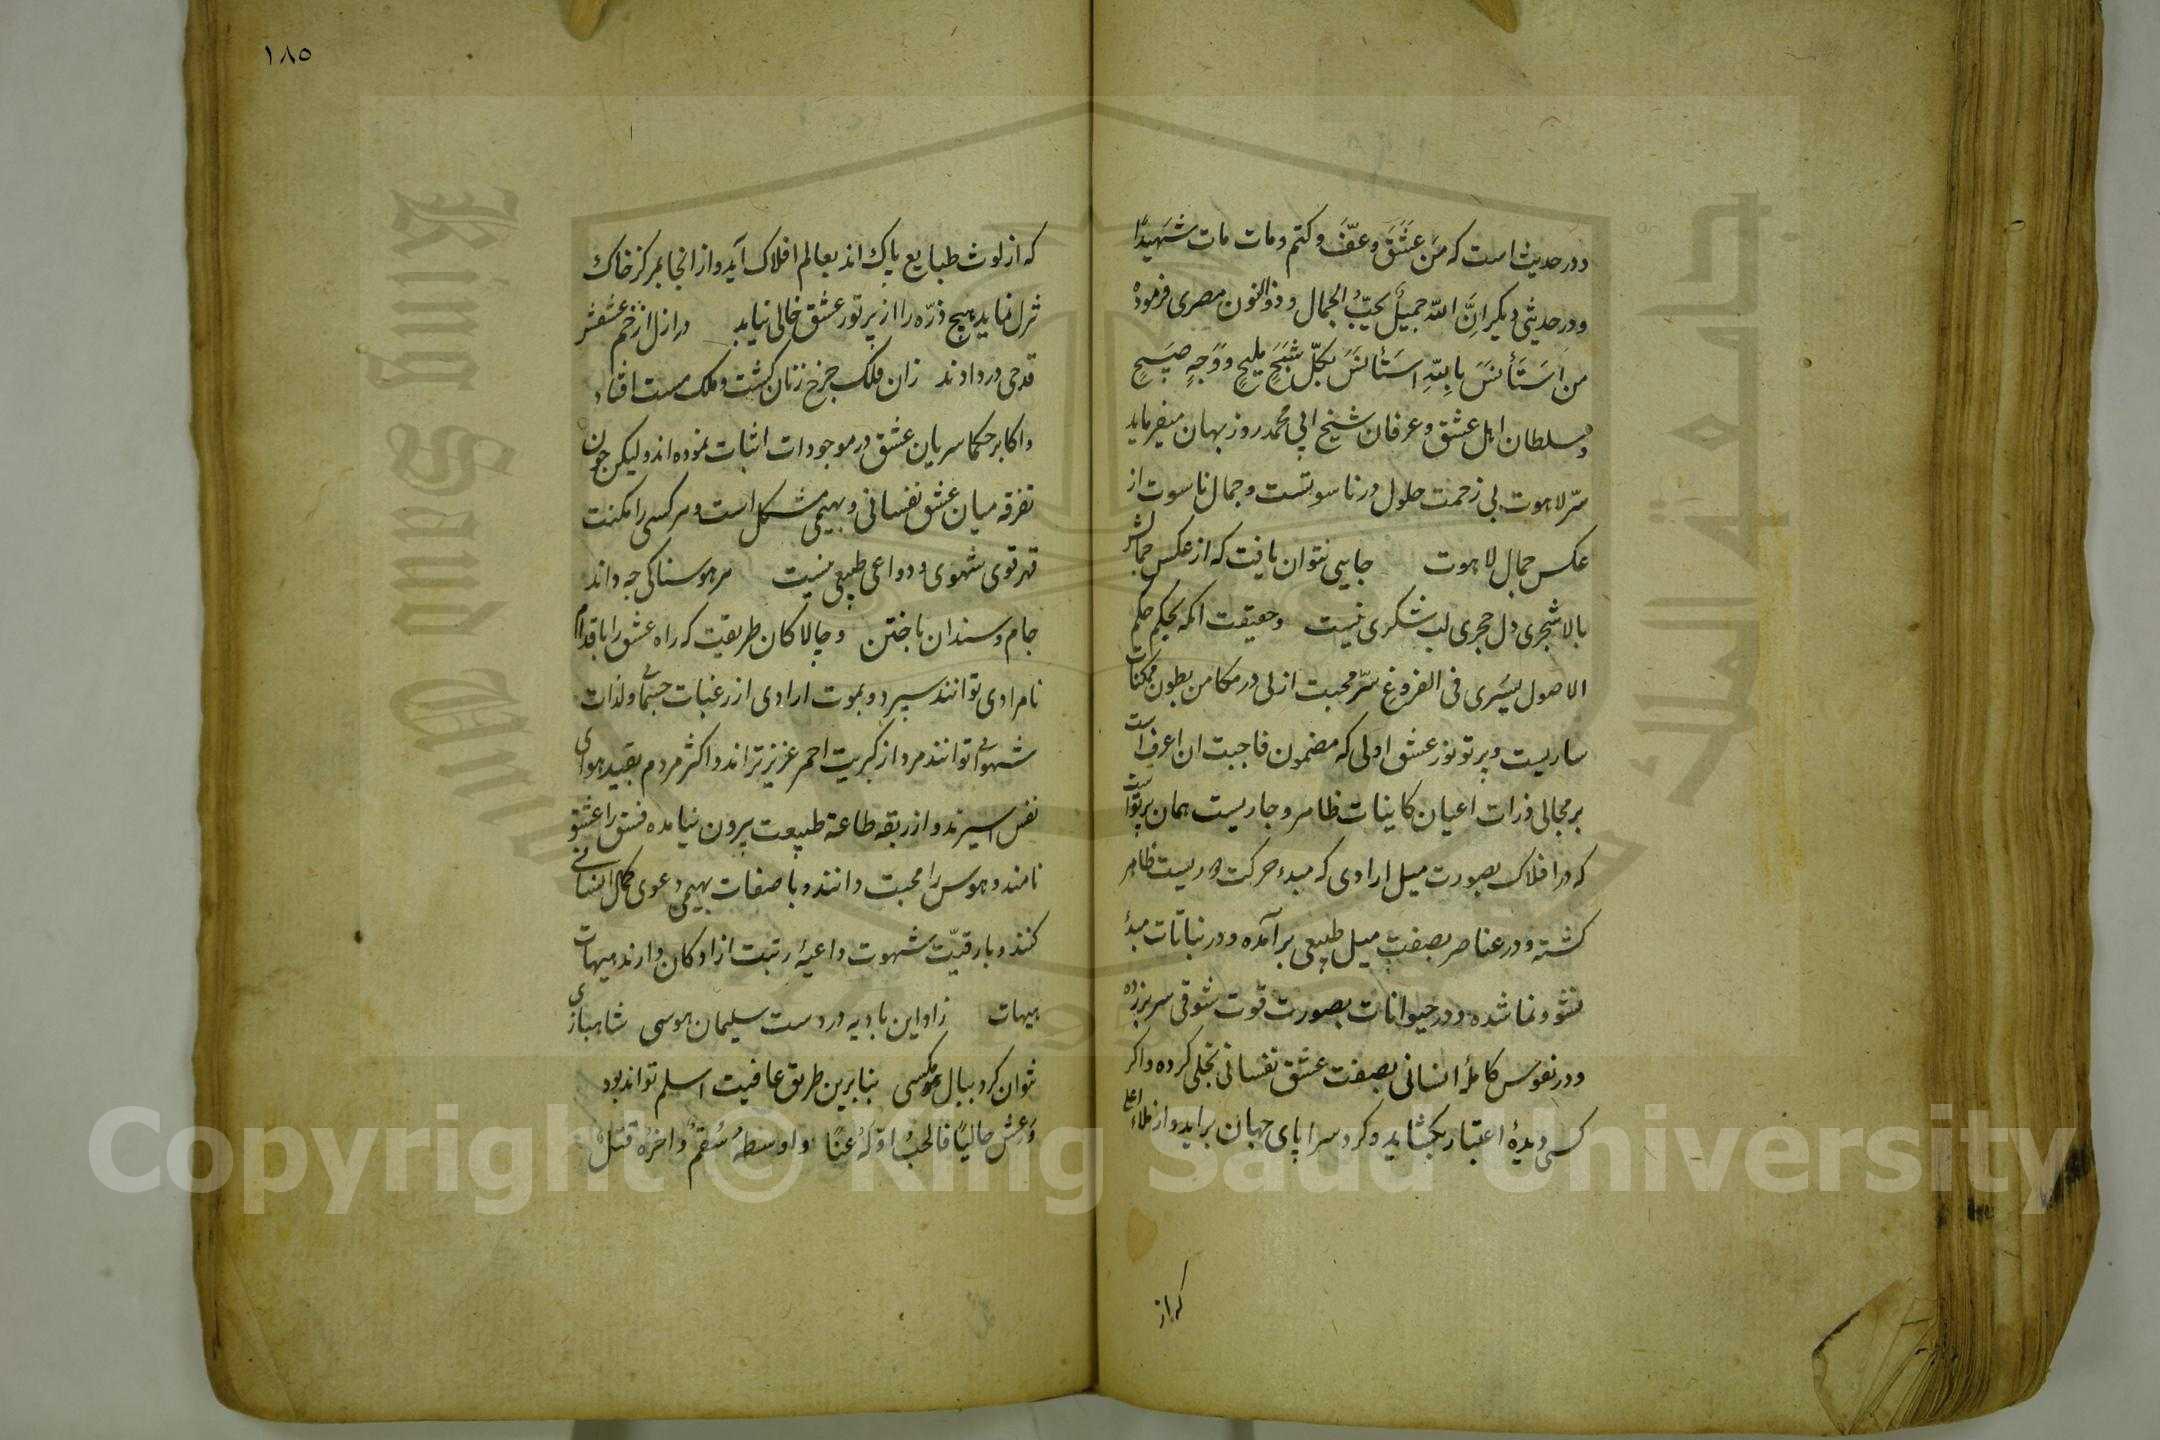 ودر حدیث است که مَن عَشَقَ وعفَّ وکتم ومات مات شهیدًا
ودر حدیثی دیکر اِنَّ اللّه جمیلٌ یحبُّ الجمال وذوالنون مصری فرموده
من اَستَأنَسَ باللّهِ استَأنَسَ بکلّ شَبَحٍ ملیحٍ ووَجهٍ صبیحٍ
وسلطان اهل عشق وعرفان شیخ ابی محمد روزبهان میفرماید
سرّ لاهوت بی زحمت حلول در ناسوتست وجمال ناسوت از
عکس جمال لاهوت جایی نتوان یافت که از عکس جمالش
بالا شجری دل حجری لب شکری نیست وحقیقت انکه بحکم حکم
الاصول یسَری فی الفروع سرّ محبت ازلی در مکامن بطون ممکنات
ساریست وپرتو نور عشق اولی که مضمون فاحببت ان اعرف است
بر مجالی ذرات اعیان کاینات ظاهر وجاریست همان پرتواست
که در افلاک بصورت میل ارادی که مبدء حرکت دوریست ظاهر
کشته ودر عناصر بصفتِ میل طبیعی برآمده ودر نباتات مبدأ
نشو ونما شده ودر حیوانات بصورت قوت شوقی سر برزده
ودر نفوس کاملهٔ انسانی بصفت عشق نفسانی تجلی کرده واکر
کسی دیدهٔ اعتبار بکشاید وکرد سراپای جهان براید واز ملاء اعلی
که از
١٨٥
که از لوث طبایع پاک اند بعالم افلاک آید واز انجا بمرکز خاک
نزل نماید هیچ ذرّه را از پرتو نور عشق خالی نیابد در ازل از خم عشقش
قدحی در دادند زان فلک چرخ زنان کشت وملک مست افتاد
واکابر حکما سریان عشق در موجودات اثبات نموده اند ولیکن چون
تفرقه میان عشق نفسانی وبهیمی مشکل است وهر کسی را مکنت
قهر قوی شهوی ودواعی طبیعی نیست هر هوسناکی چه داند
جام وسندان باختن وچالاکان طریقت که راه عشق را باقدام
نامرادی توانند سپرد وبموت ارادی از رغبات جسمانی ولذات
شهوانی توانند مرد از کبریت احمر عزیزتر اند واکثر مردم بقید هوای
نفس اسیرند واز ربقه طاعة طبیعت بیرون نیامده فسق را عشق
نامند وهوس را محبت دانند وبا صفات بهیمی دعوی کمال انسانی
کنند وبا رقیّت شهوت داعیهٔ رتبت ازادکان دارند هیهات
هیهات زاد این بادیه در دست سلیمان هوسی شاهبازی
نتوان کرد ببال مکسی بنابرین طریق عافیت اسلم تواند بود
وَعِش خالیًا فالحبُ اوّلُهُ عَنًا واوسطهُ سُقمٌ واخرُهُ قتلُ